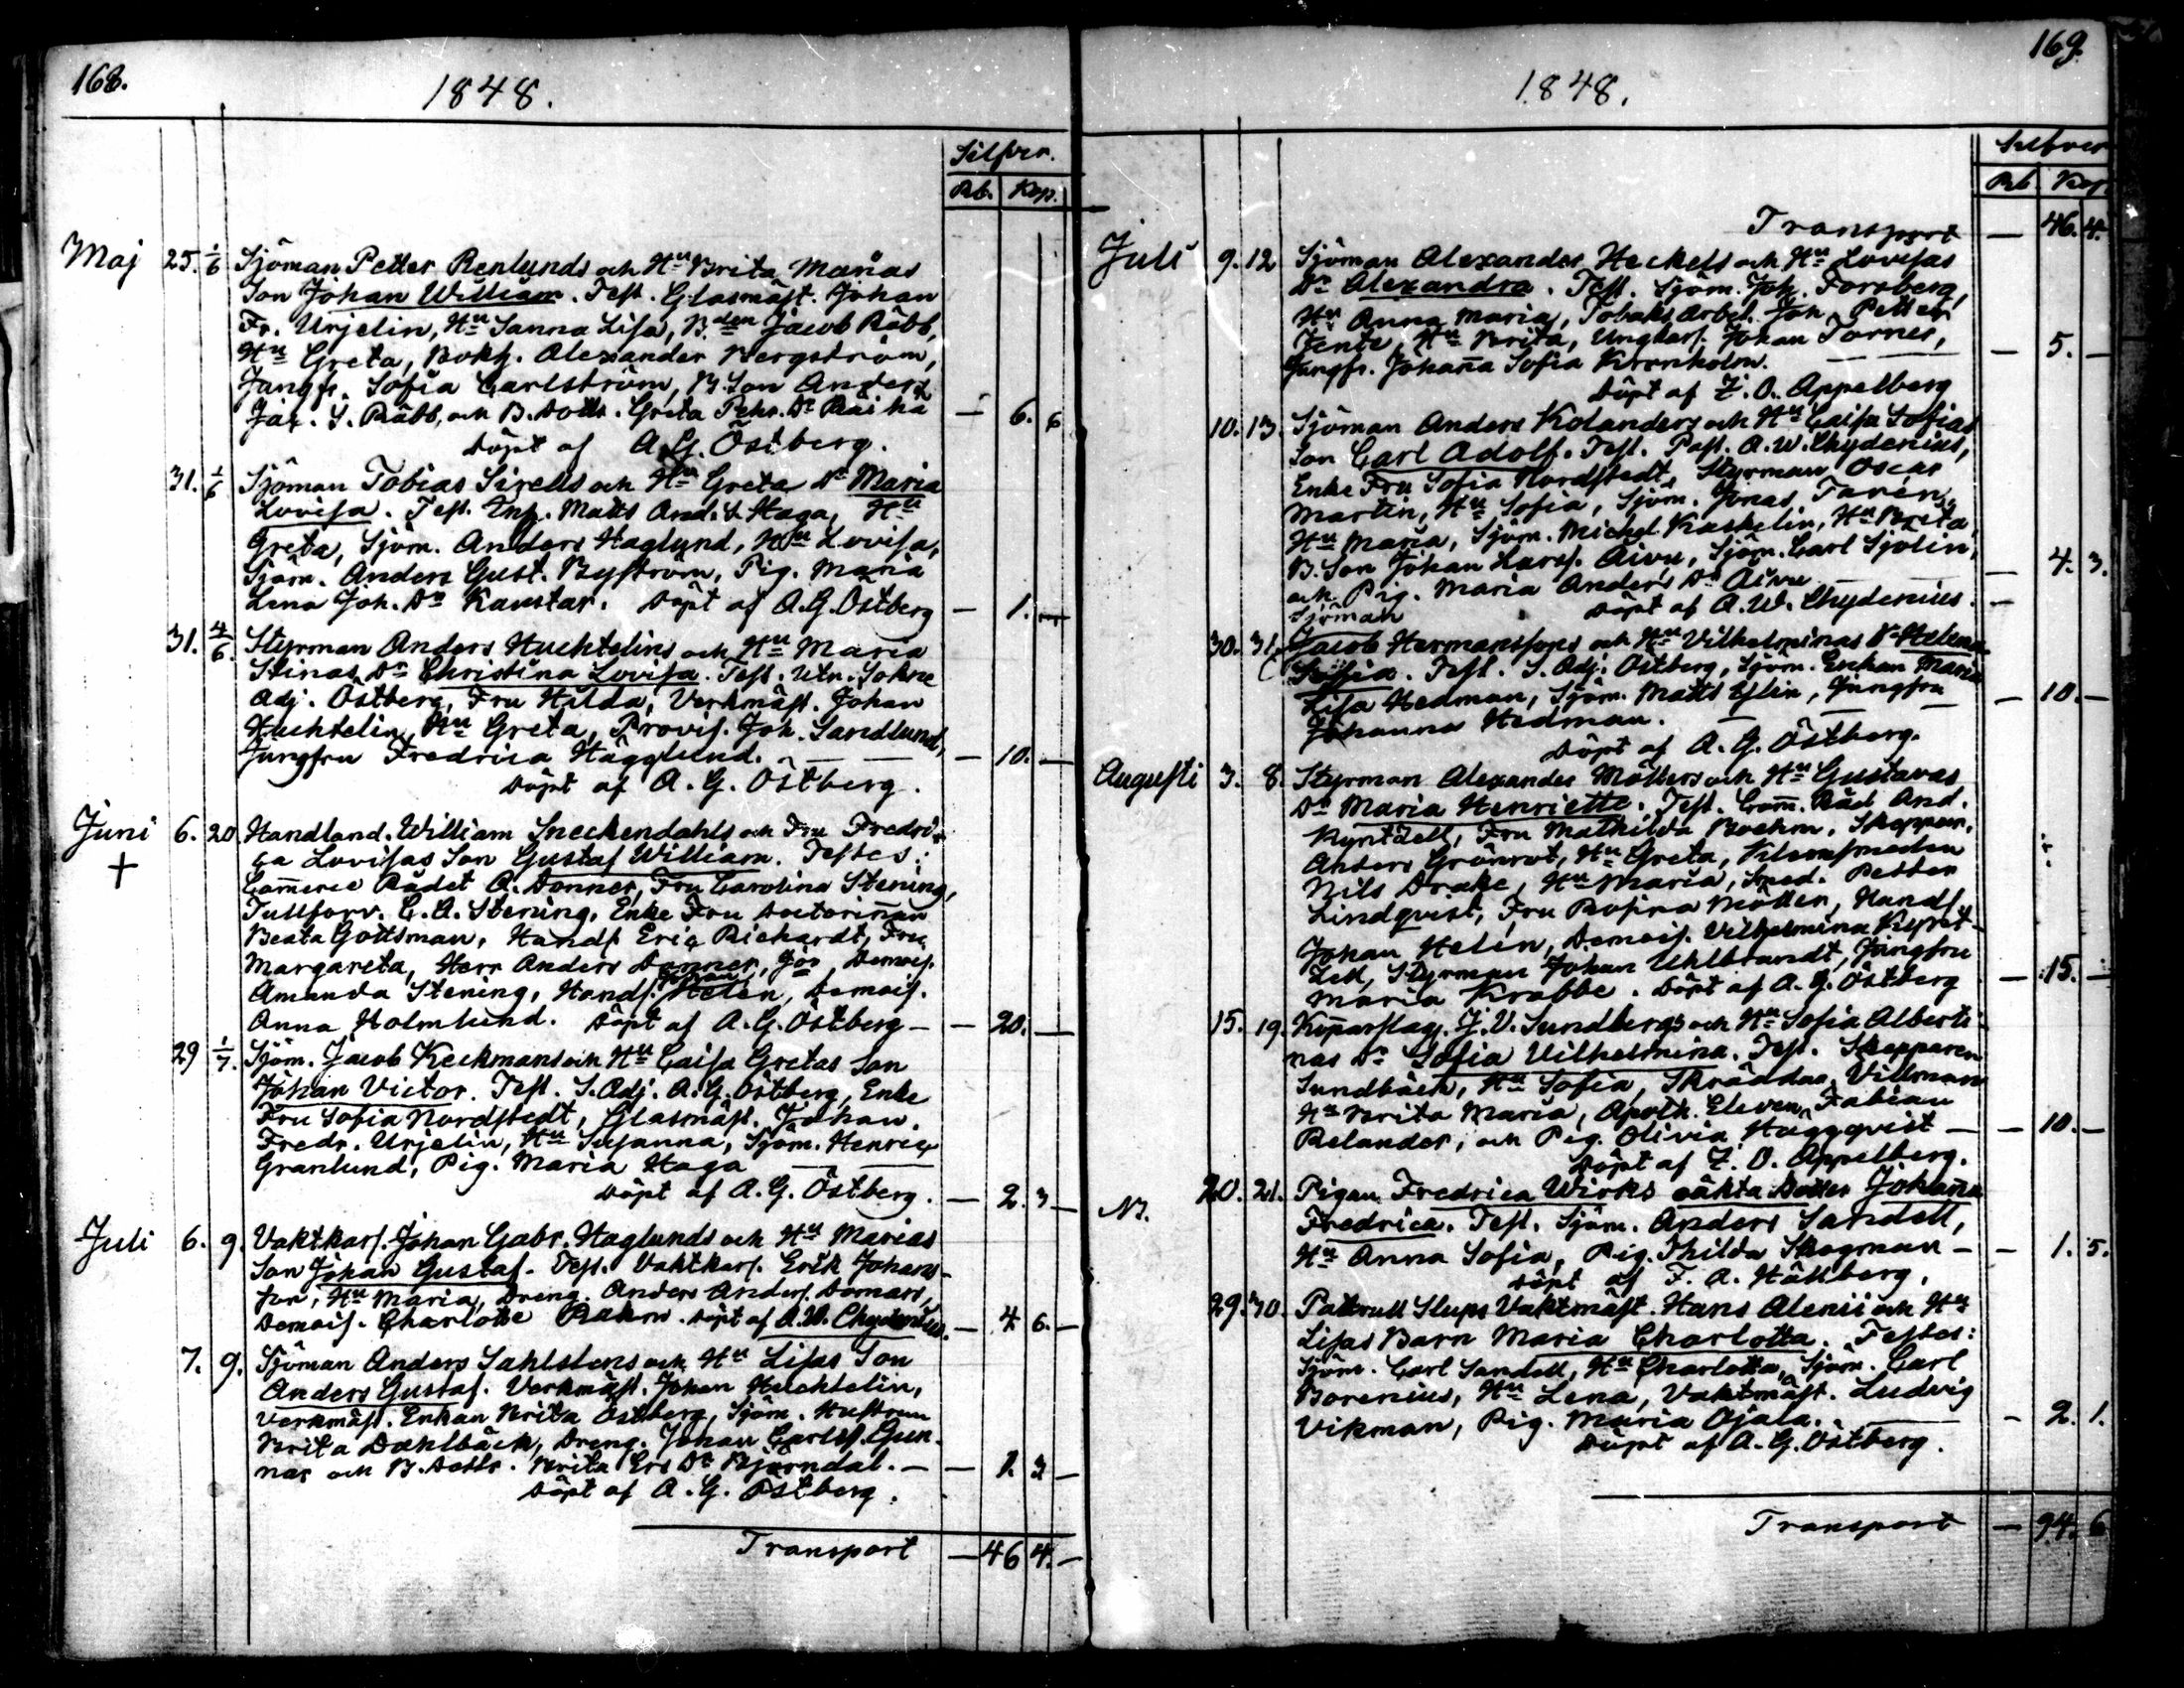 168.
1848.
Silfver.
Rb. Kop.
Maj 25. 1/6 Sjöman Petter Renlunds och Hu Brita Marias
Son Johan William. Test. Glasmäst. Johan
Fr. Urjelin, Hu Sanna Lisa, B.den Jacob Räbb,
Hu Greta, Bokh. Alexander Bergström,
Jungfr. Sofia Carlström, B. Son Anders
Jac. J. Räbb, och B. Dottr. Greta Pehrs Dr Räihä — 6. 6
Döpt af A. G. Östberg.
31. 1/6 Sjöman Tobias Sirelis och Hu Greta Dr Maria
Lovisa. Test. Enh. Matts And. s. Haga, Hu
Greta, Sjöm. Anders Haglund, Hu Lovisa,
Sjöm. Anders Gust. Byström, Pig. Maria
Lena Joh. Dr Kaustar. Döpt af A. G. Östberg — 1. —
31. 4/6. Styrman Anders Huchtelins och Hu Maria
Stinas Dr Christina Lovisa. Test. Utn. Sokne
Adj. Östberg, Fru Hilda, Verkmäst. Johan
Huchtelin, Hu Greta, Provis. Joh. Sandlund,
Jungfru Fredrica Hägglund. — — — 10. —
Döpt af A. G. Östberg.
Juni 6. 20 Handland. William Sneckendahls och Fru Fredri-
+ ca Lovisas Son Gustaf William. Testes:
Com̄erce Rådet A. Donner, Fru Carolina Stening,
Tullförv. C. A. Stening, Enke Fru Doctorin̄an
Beata Gottsman, Handl. Eric Richardt, Fru
Margareta, Herr Anders Donner, Jör, Demois.
Amanda Stening, Handl. Johan Helen, Demois.
Anna Holmlund. Döpt af A. G. Östberg — — 20. —
29 1/7. Sjöm. Jacob Keckmans och Hu Caisa Gretas Son
Johan Victor. Test. S. Adj. A. G. Östberg, Enke
Fru Sofia Nordstedt, Glasmäst. Johan
Fredr. Urjelin, Hu Susanna, Sjöm. Henric
Granlund, Pig. Maria Haga — —
Döpt af A. G. Östberg. — 2. 3 —
Juli 6. 9. Vaktkarl. Johan Gabr. Haglunds och Hu Marias
Son Johan Gustaf. Test. Vaktkarl. Erik Johans-
son, Hu Maria, Dreng. Anders Anders. Domars,
Demois. Charlotte Rahm. Döpt af A. W. Chydenius. — 4. 6. —
7. 9. Sjöman Anders Sahlstens och Hu Lisas Son
Anders Gustaf. Verkmäst. Johan Huchtelin,
Verkmäst. Enkan Brita Östberg, Sjöm. Hustrun
Brita Dahlbäck, Dreng. Johan Carlss. Gun-
nar och B. Dottr. Brita Ers Dr Björndal. — — 1. 3 —
Döpt af A. G. Östberg.
Transport — 46 4. —
169.
1848.
Silfver
Rb Kop.
Transport — 46. 4.
Juli 9. 12 Sjöman Alexander Heckels och Hu Lovisas
Dr Alexandra. Test. Sjöm. Joh. Forsberg,
Hu Anna Maria, Tobaks Arbet. Joh. Petter
Jente, Hu Brita, Ungkarl. Johan Tornes, — 5. —
Jungfr. Johan̄a Sofia Kronholm. —
Döpt af Z. O. Appelberg
10. 13. Sjöman Anders Kolanders och Hu Caisa Sofias
Son Carl Adolf. Test. Past. A. W. Chydenius,
Enke Fru Sofia Nordstedt, Styrman Oscar
Martin, Hu Sofia, Sjöm. Jonas Taven,
Hu Maria, Sjöm. Michel Kaskelin, Hu Brita,
B. Son Johan Larss. Aivu, Sjöm. Carl Sjölin,
och Pig. Maria Anders Dr Aivu — — 4. 3.
Döpt af A. W. Chydenius. —
Sjöman
30. 31. Jacob Hermanssons och Hu Vilhelminas Dr Helena
Sofia. Test. S. Adj. Östberg, Sjöm. Enkan Maria
Lisa Hedman, Sjöm. Matts Elin, Jungfru
Johanna Hedman. — — — — 10. —
Döpt af A. G. Östberg.
Augusti 3. 8. Styrman Alexander Möllers och Hu Gustavas
Dr Maria Henriette. Test. Com̄. Råd And.
Kyntzell, Fru Mathilda Boehm, Skeppar.
Anders Grönrot, Hu Greta, Klensmeden
Nils Drake, Hu Maria, Smed. Petter
Lindqvist, Fru Rosina Möller, Handl.
Johan Helén, Demois. Vilhelmina Kynt-
zell, Styrman Johan Uhlbrandt, Jungfru
Maria Krabbe. Döpt af A. G. Östberg — 15. —
15. 19. Kopparslag. J. V. Sundbergs och Hu Sofia Alberti-
nas Dr Sofia Vilhelmina. Test. Skepparen
Sundbäck, Hu Sofia, Skräddar. Villman
Hu Brita Maria, Apoth. Eleven Fabian
Relander, och Pig. Olivia Häggqvist — — 10. —
Döpt af Z. O. Appelberg.
N. 20. 21. Pigan Fredrica Wirks oäkta Dotter Johan̄a
Fredrica. Test. Sjöm. Anders Sandell,
Hu Anna Sofia, Pig. Thilda Skogman — — 1. 5.
Döpt af F. A. Hällberg.
29. 30. Patrull Slups Vaktmäst. Hans Alenii och Hu
Lisas Barn Maria Charlotta. Testes:
Sjöm. Carl Sandell, Hu Charlotta, Sjöm. Carl
Borenius, Hu Lena, Vaktmäst. Ludvig
Vikman, Pig. Maria Ojala. — — 2. 1.
Döpt af A. G. Östberg.
Transport — 94. 6